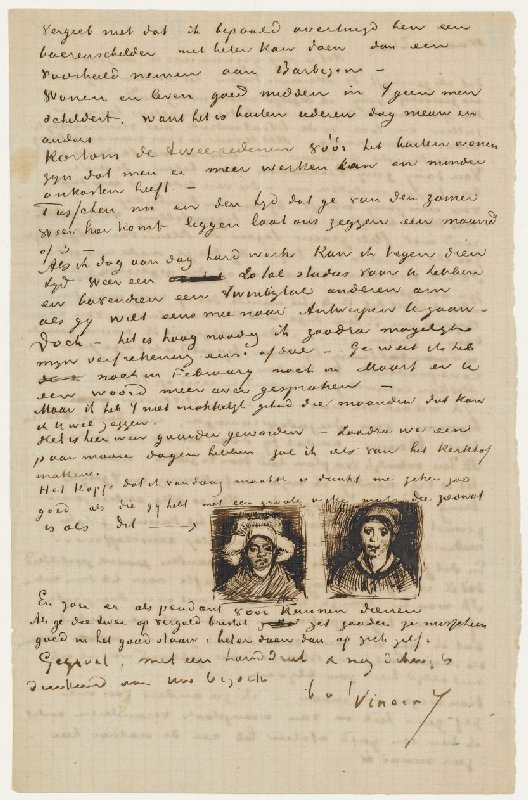 Vergeet niet dat ik bepaald overtuigd ben een
boerenschilder niet beter kan doen dan een
voorbeeld nemen aan Barbezon –
Wonen en leven goed midden in 't geen men
schildert. want het is buiten iederen dag nieuw en
anders
Kortom de twee redenen vóór het buiten wonen
zyn dat men er meer werken kan en minder
onkosten heeft. –
Tusschen nu en den tyd dat ge van den zomer
weer hier komt leggen laat ons zeggen een maand
of 3
Als ik dag aan dag hard werk kan ik tegen dien
tyd weer een 20tal studies voor U hebben
en bovendien een twintigtal anderen om
als gy wilt eens mee naar Antwerpen te gaan –
Doch – het is hoog noodig ik zoodra mogelyk
myn verfrekening af doe – Ge weet ik heb
noch in February noch in Maart er U
een woord meer over gesproken –
Maar ik heb 't niet makkelyk gehad die maanden dat kan
ik U wel zeggen.
Het is hier weer guurder geworden – Zoodra we een
paar mooie dagen hebben zal ik iets van het kerkhof
maken.
Het kopje dat ik vandaag maakte is dunkt me geheel zoo
goed als die gy hebt met een groote witte muts die zoowat
is als dit
En zou er als pendant voor kunnen dienen
Als ge die twee op verguld bristol zet zouden ze misschien
goed in het goud staan, beter doen dan op zich zelf.
Gegroet, met een handdruk & nog steeds
denkend aan Uw bezoek
b. à t.
Vincent